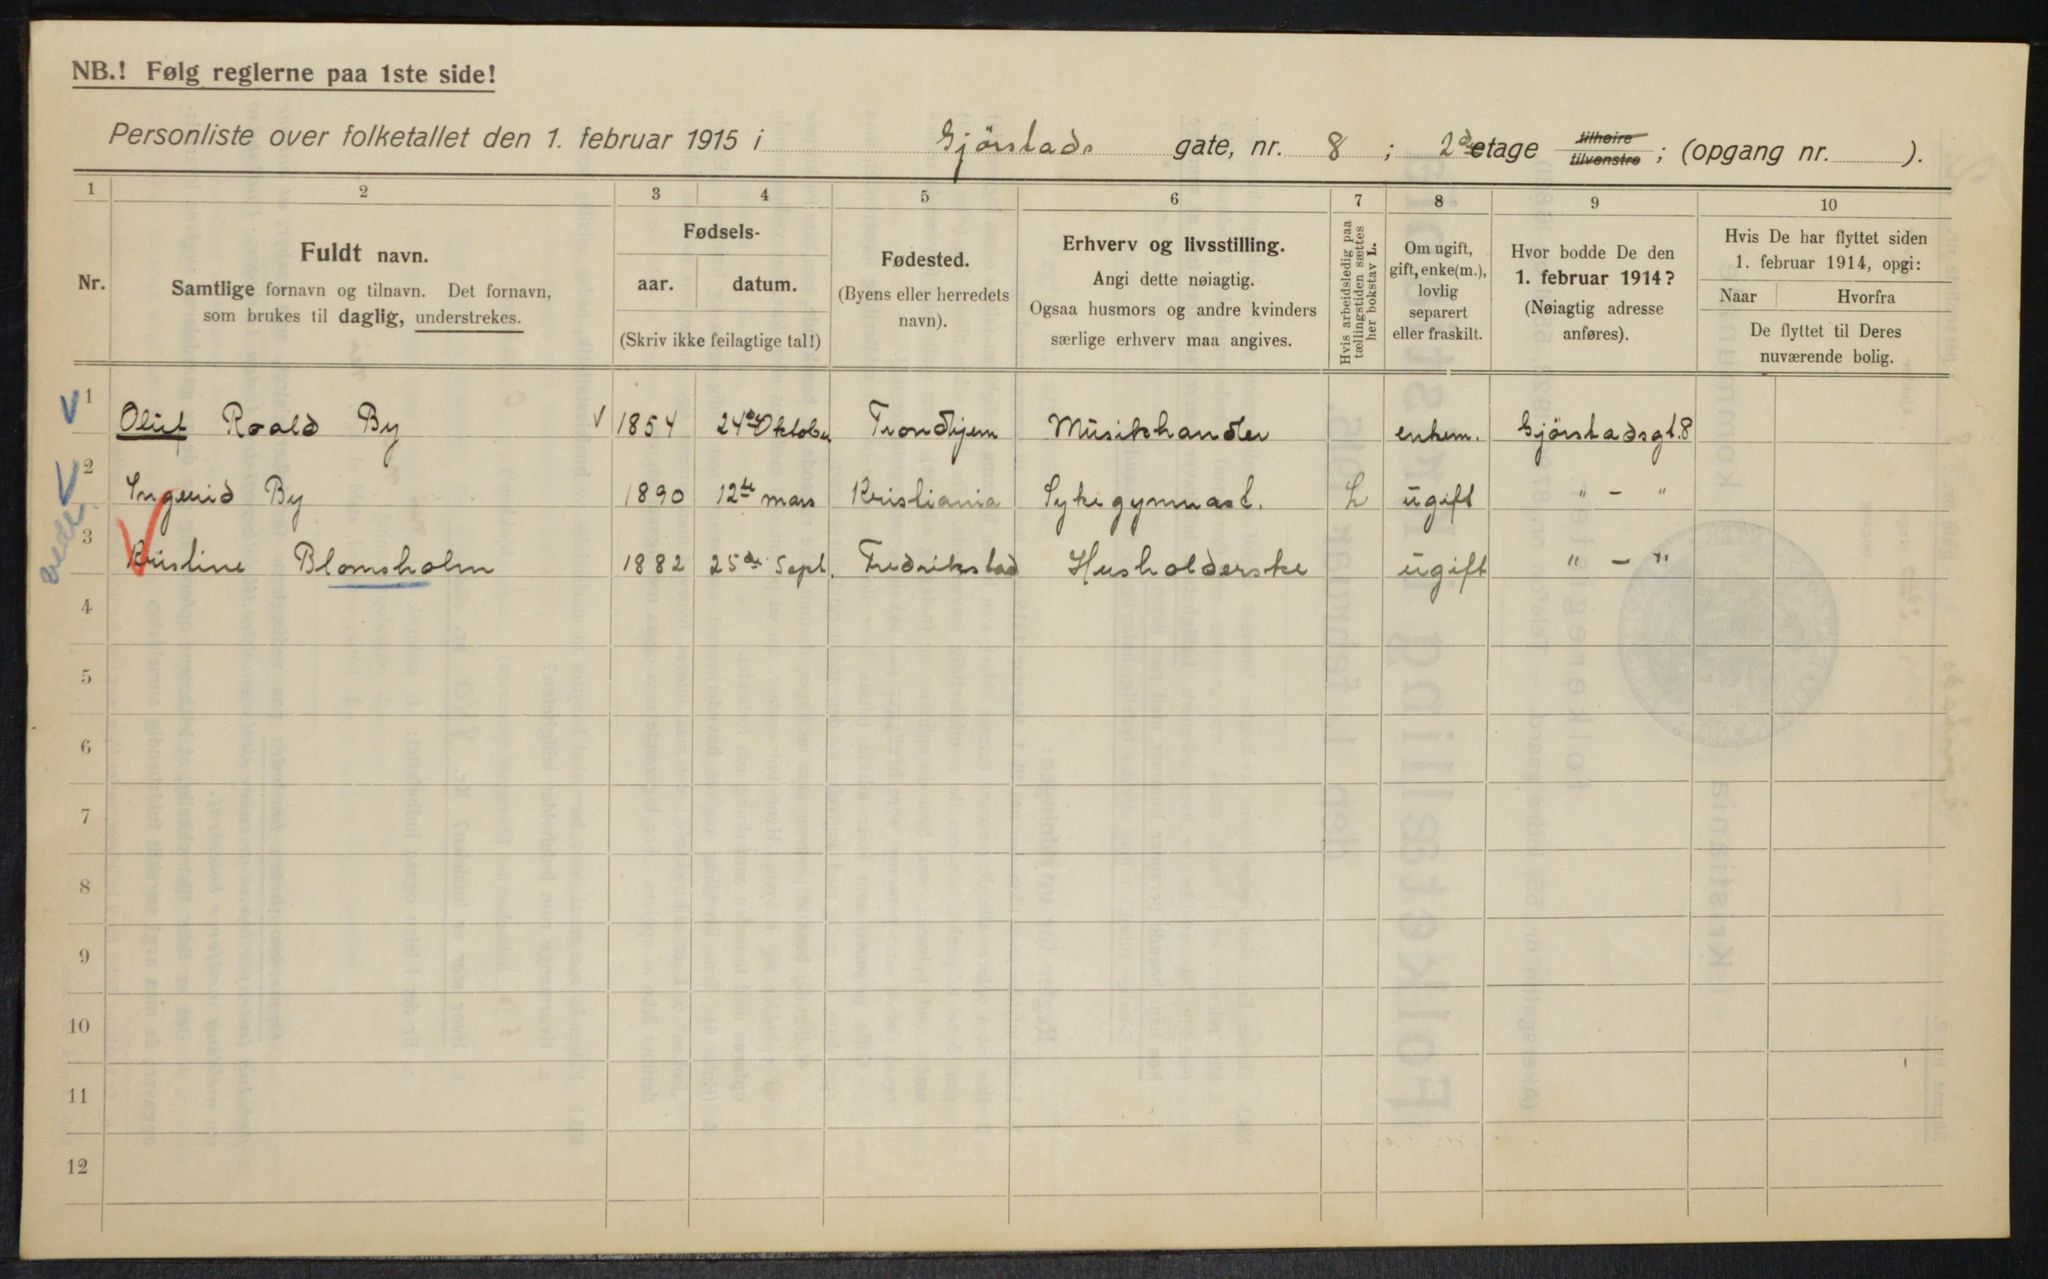 NB.! Følg reglerne paa 1ste side!
Personliste over folketallet den 1. februar 1915 i Gjörstads gate, nr. 8 ; 2d etage tilhøire tilvenstre ; (opgang nr. ).
1 2 3 4 5 6 7 8 9 10
Nr.
Fuldt navn.
Samtlige fornavn og tilnavn. Det fornavn,
som brukes til daglig, understrekes.
Fødsels-
aar. datum.
(Skriv ikke feilagtige tal!)
Fødested.
(Byens eller herredets
navn).
Erhverv og livsstilling.
Angi dette nøiagtig.
Ogsaa husmors og andre kvinders
særlige erhverv maa angives.
Hvis arbeidsledig paa
tællingstiden sættes
her bokstav L.
Om ugift,
gift, enke(m.),
lovlig
separert
eller fraskilt.
Hvor bodde De den
1. februar 1914?
(Nøiagtig adresse
anføres).
Hvis De har flyttet siden
1. februar 1914, opgi:
Naar Hvorfra
De flyttet til Deres
nuværende bolig.
1 Oluf Roald By 1854 24de Oktober Trondhjem Musikhandler enkem. Gjörstadsgt. 8
2 Ingerid By 1890 12te mars Kristiania Sykegymnast. L ugift " - "
3 Kristine Blomsholm 1882 25de Sept. Fredrikstad Husholderske ugift " - "
4
5
6
7
8
9
10
11
12